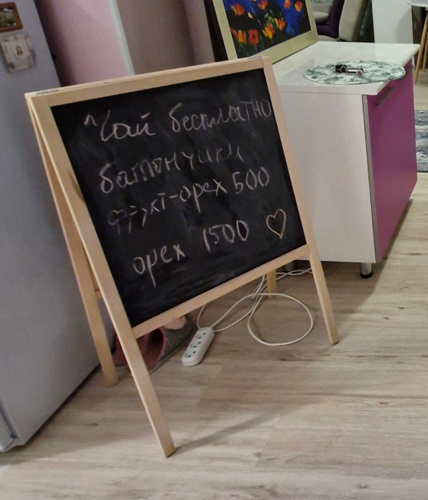 Чай бесплатно
батончики
фрукт-орех 500
орех 1500